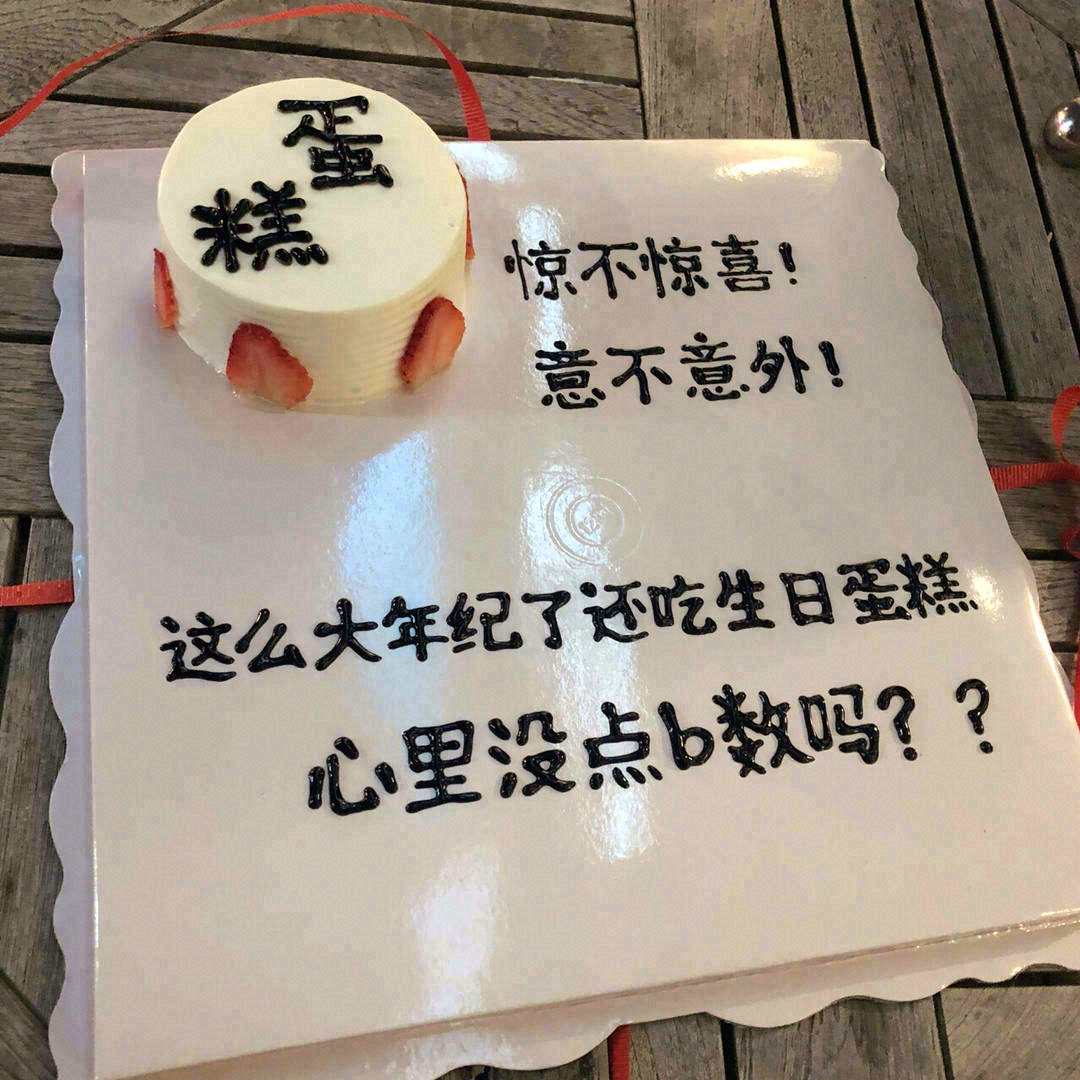 蛋
糕
惊不惊喜!
意不意外!
这么大年纪了还吃生日蛋糕
心里没点b数吗??